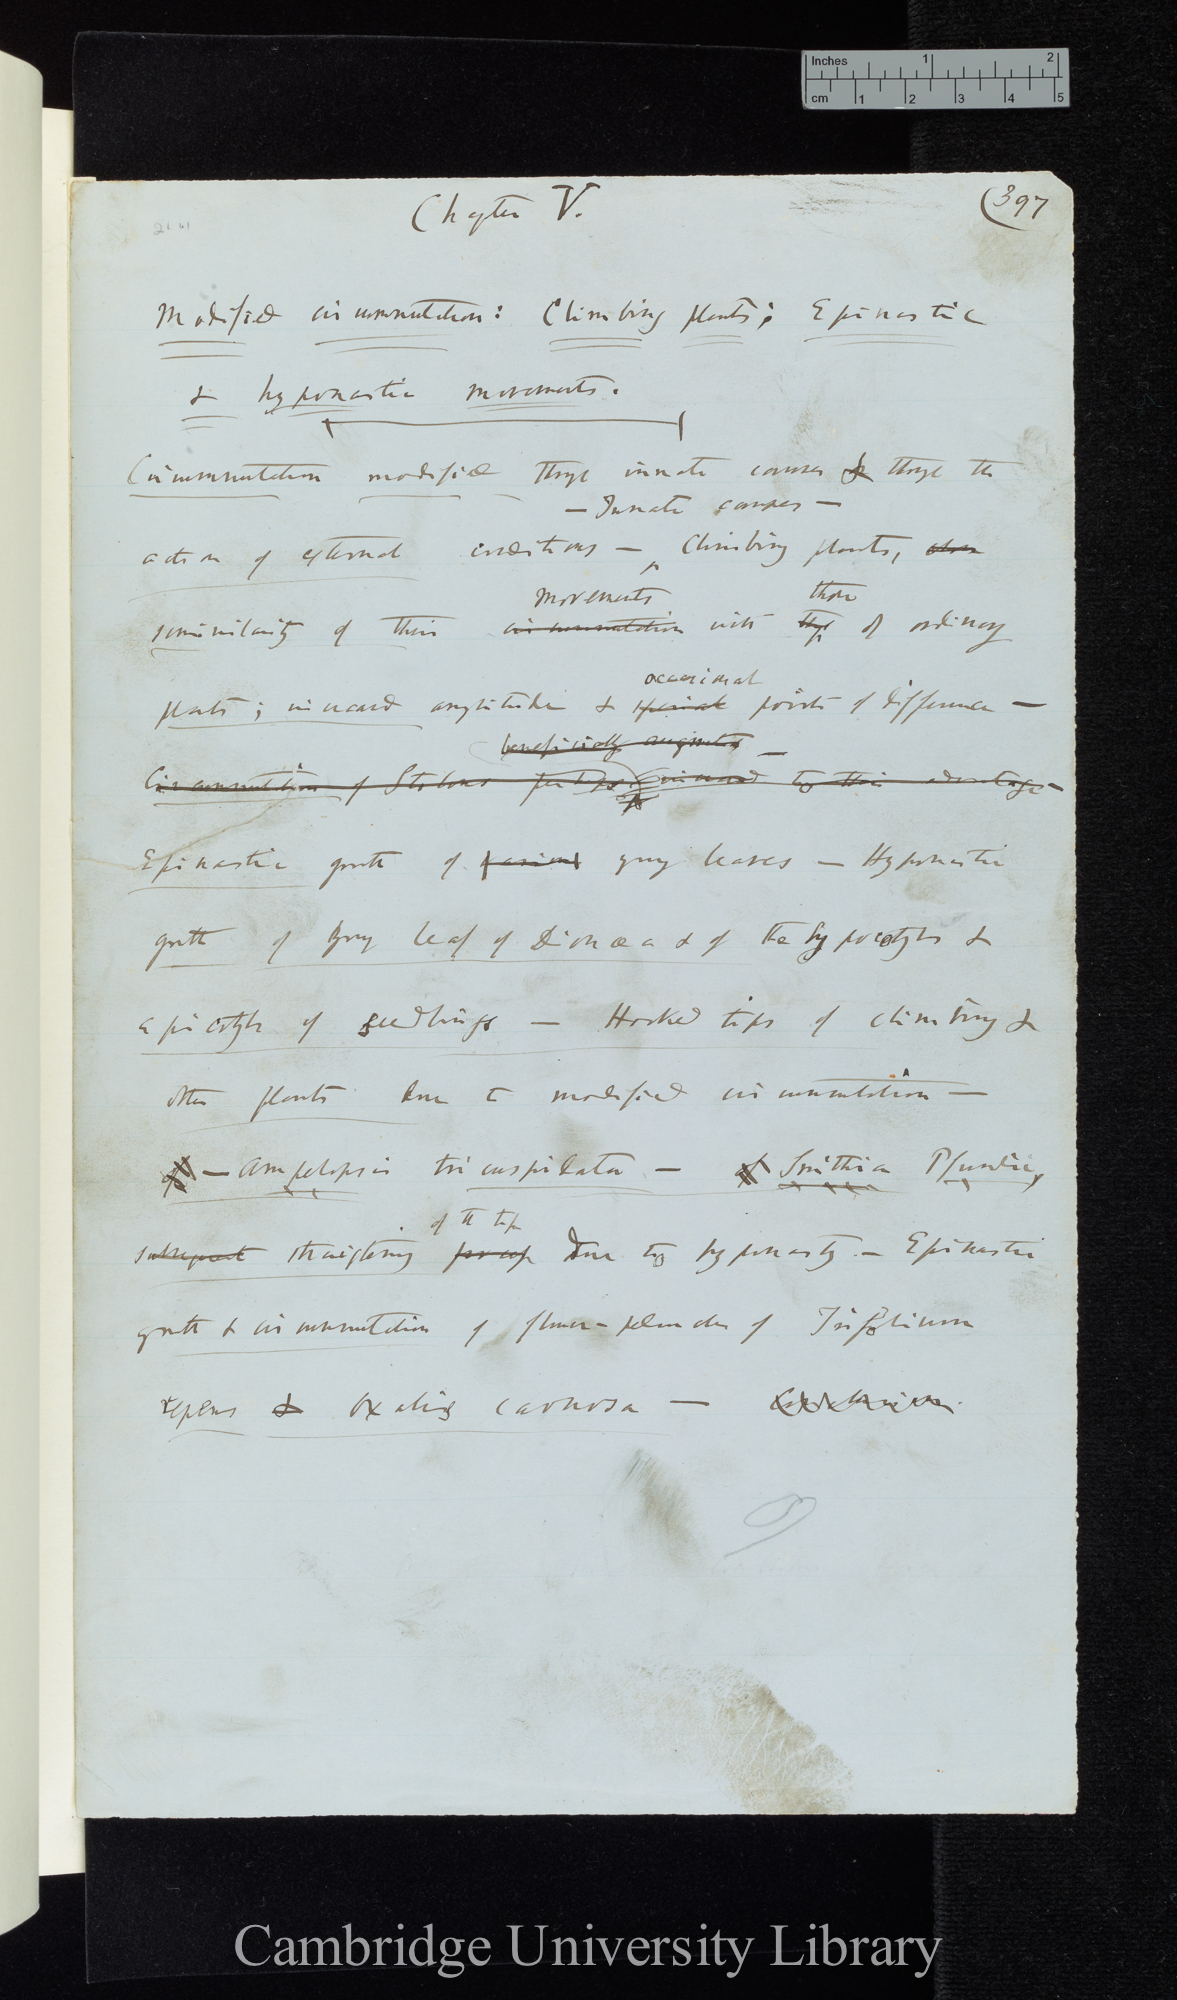 Inches 1 2
cm 1 2 3 4 5
Chapter V.
(397
Modified circumnutation: Climbing plants; Epinastic
& hyponastic movements.
Circumnutation modified through innate causes & through the
— Innate causes —
action of external conditions — Climbing plants,
movements those
similarity of their circumnutation with of ordinary
occasional
plants; increased amplitude & points of difference —
beneficially augmented —
Circumnutation of Stolons perhaps increased to their advantage —
Epinastic growth of young leaves — Hyponastic
growth of young leaf of Dionaea & of the hypocotyls &
epicotyls of seedlings — Hooked tips of climbing &
other plants due to modified circumnutation —
— Ampelopsis tricuspidata — Smithia Pfundii,
of the tip
subsequent straightening due to hyponasty — Epinastic
growth & circumnutation of flower-peduncles of Trifolium
repens & Oxalis carnosa —
Cambridge University Library